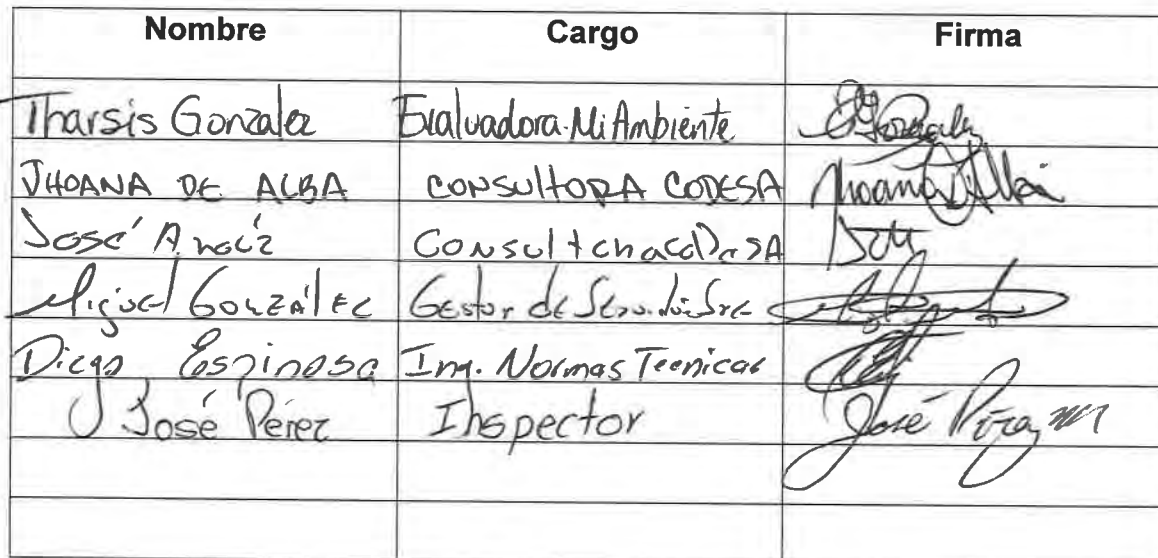 Nombre Cargo Firma
Tharsis Gonzalez Evaluadora MiAmbiente
JHOANA DE ALBA CONSULTORA CODESA
José A.
Miguel González Gestor de
Diego Espinosa Ing. Normas Tecnicas
José Pérez Inspector José Pérez